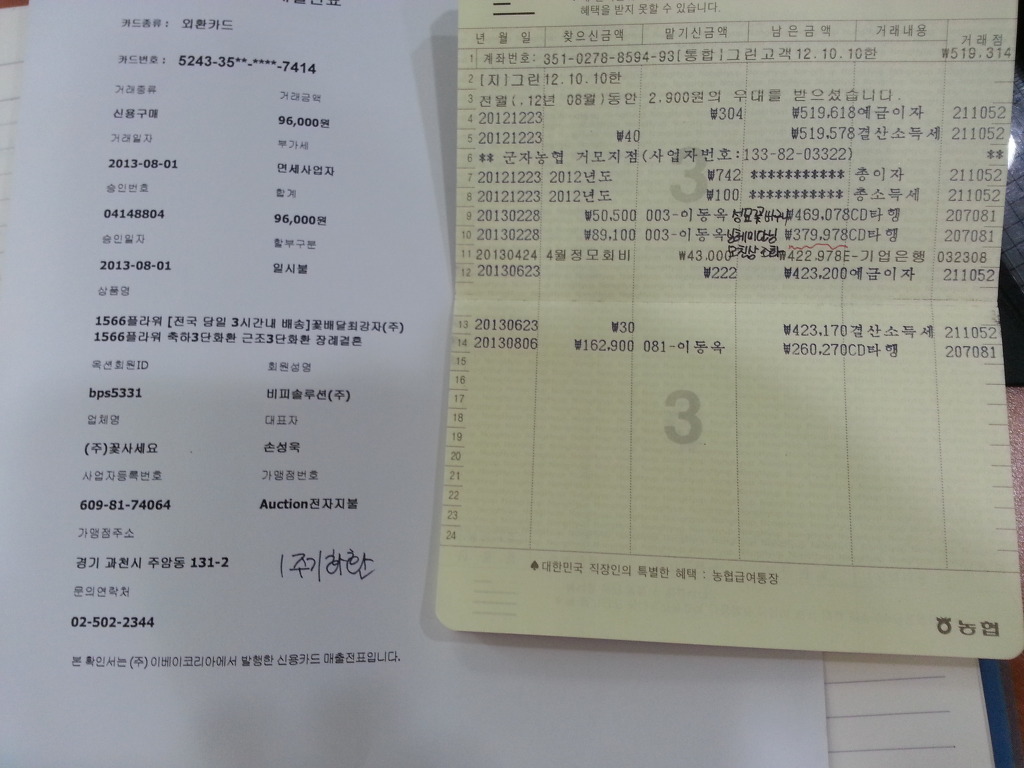 카드종류 : 외환카드
카드번호 : 5243-35**-****-7414
거래종류 거래금액
신용구매 96,000원
거래일자 부가세
2013-08-01 면세사업자
승인번호 합계
04148804 96,000원
승인일자 할부구분
2013-08-01 일시불
상품명
1566플라워 [전국 당일 3시간내 배송]꽃배달최강자(주)
1566플라워 축하3단화환 근조3단화환 장례결혼
옥션회원ID 회원성명
bps5331 비피솔루션(주)
업체명 대표자
(주)꽃사세요 손성욱
사업자등록번호 가맹점번호
609-81-74064 Auction전자지불
가맹점주소
경기 과천시 주암동 131-2
1주기화환
문의연락처
02-502-2344
본 확인서는 (주)이베이코리아에서 발행한 신용카드 매출전표입니다.
혜택을 받지 못할 수 있습니다.
년 월 일 찾으신금액 맡기신금액 남은금액 거래내용 거래점
1 계좌번호: 351-0278-8594-93[통합]그린고객12.10.10한 ₩519,314
2 [지]그린12.10.10한
3 전월(.12년 08월)동안 2,900원의 우대를 받으셨습니다.
4 20121223 ₩304 ₩519,618예금이자 211052
5 20121223 ₩40 ₩519,578결산소득세 211052
6 ** 군자농협 거모지점(사업자번호:133-82-03322) **
7 20121223 2012년도 ₩742 *********** 총이자 211052
8 20121223 2012년도 ₩100 *********** 총소득세 211052
9 20130228 ₩50,500 003-이동옥 ₩469,078CD타행 207081
10 20130228 ₩89,100 003-이동옥 ₩379,978CD타행 207081
11 20130424 4월정모회비 ₩43,000 ₩422,978E-기업은행 032308
12 20130623 ₩222 ₩423,200예금이자 211052
13 20130623 ₩30 ₩423,170결산소득세 211052
14 20130806 ₩162,900 081-이동옥 ₩260,270CD타행 207081
15
16
17
18
19
20
21
22
23
24
3
3
♠대한민국 직장인의 특별한 혜택 : 농협급여통장
농협